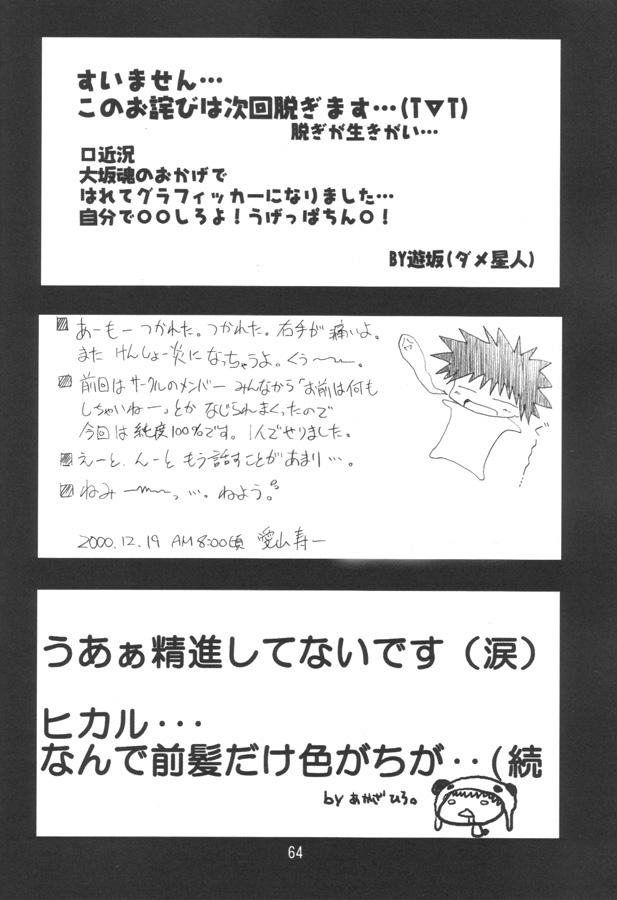 すいません…
このお詫びは次回脱ぎます…(T▽T)
脱ぎが生きがい…
口近況
大坂魂のおかげで
はれてグラフィッカーになりました…
自分で〇〇しろよ！うげっぱちん〇！
BY遊坂(ダメ星人)
あーもーつかれた。つかれた。右手が痛いよ。
また けんしょー炎になっちゃうよ。くぅ〜〜。
前回はサークルのメンバー みんなから「お前は何も
しちゃいねー」とか なじられまくったので
今回は純度100%です。1人でやりました。
えーと、んーと もう話すことがあまり…。
ねみー〜〜っ…。ねよう。
2000.12.19 AM8:00頃 愛山寿一
うあぁ精進してないです（涙）
ヒカル・・・
なんで前髪だけ色がちが・・(続
by あかざひろ。
64